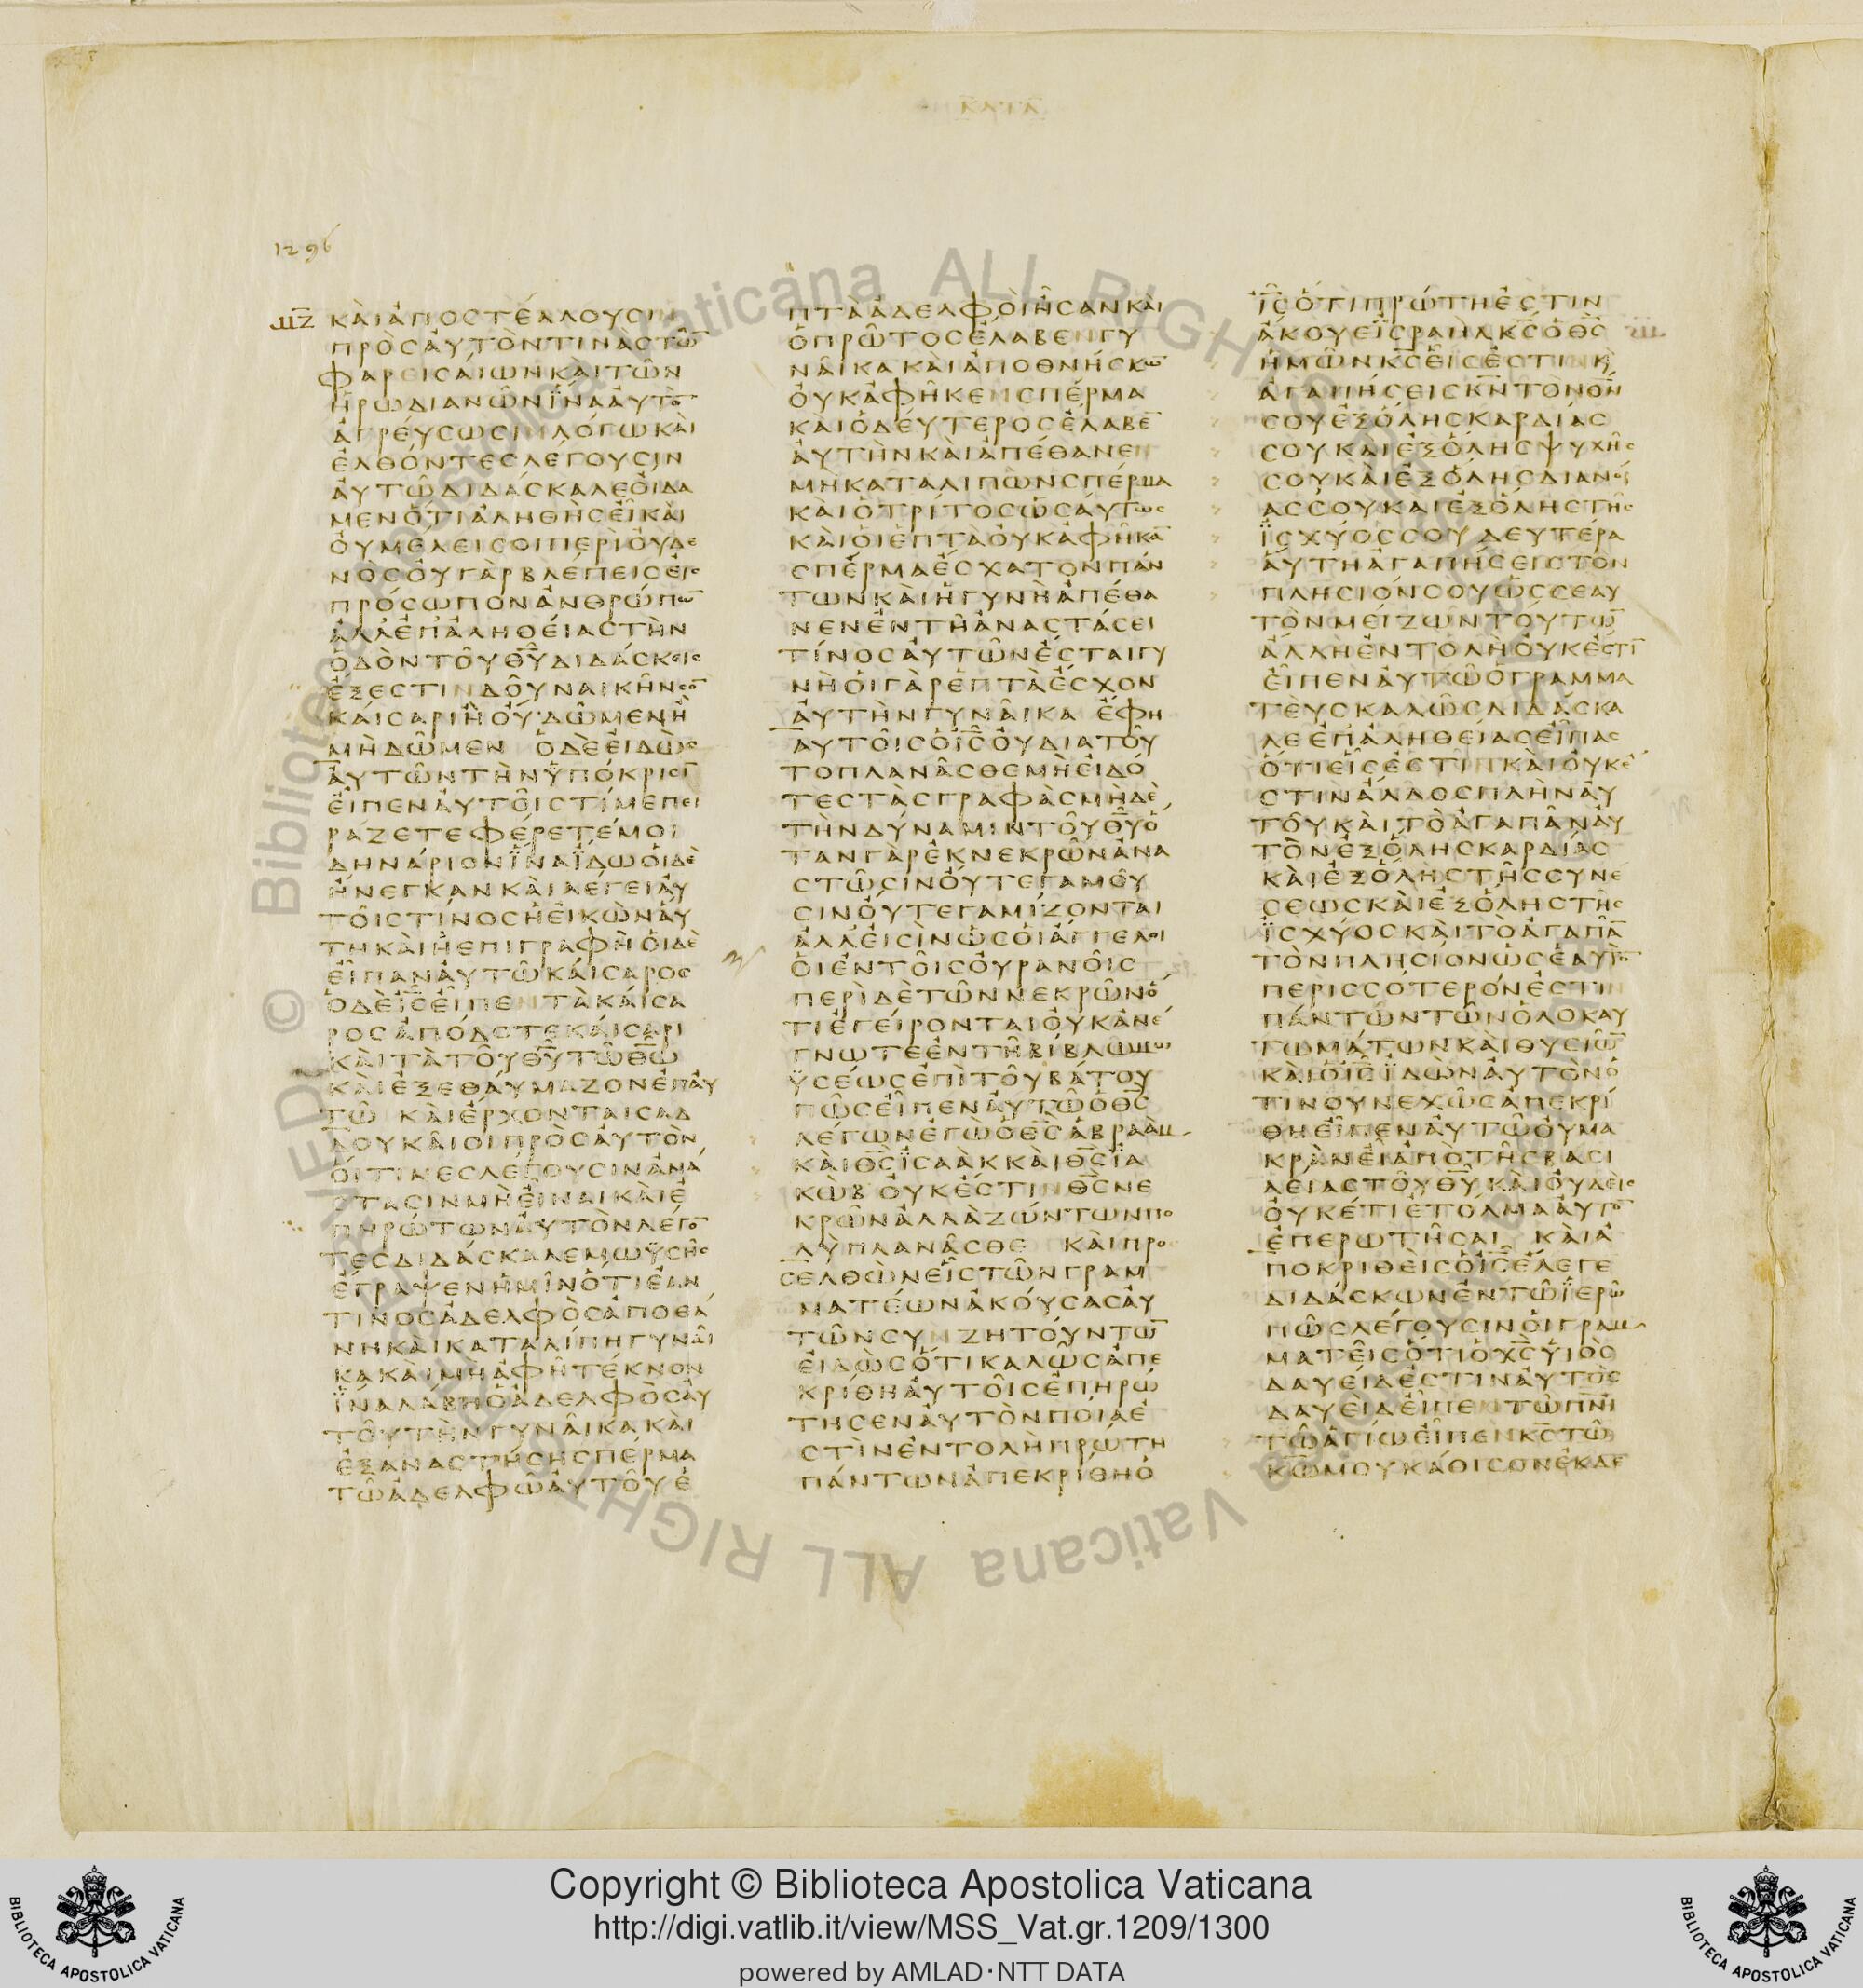 ΚΑΤΑ
1296
ΜΖ ΚΑΙΑΠΟΣΤΕΛΛΟΥΣΙΝ
ΠΡΟΣΑΥΤΟΝΤΙΝΑΣΤΩ̅
ΦΑΡΕΙΣΑΙΩΝΚΑΙΤΩΝ
ΗΡΩΔΙΑΝΩΝΪΝΑΑΥΤΟ̅
ΑΓΡΕΥΣΩΣΙΝΛΟΓΩΚΑΙ
ΕΛΘΟΝΤΕΣΛΕΓΟΥΣΙΝ
ΑΥΤΩΔΙΔΑΣΚΑΛΕΟΙΔΑ
ΜΕΝΟΤΙΑΛΗΘΗΣΕΙΚΑΙ
ΟΥΜΕΛΕΙΣΟΙΠΕΡΙΟΥΔΕ
ΝΟΣΟΥΓΑΡΒΛΕΠΕΙΣΕΙΣ
ΠΡΟΣΩΠΟΝΑΝΘΡΩΠΩ̅
ΑΛΛΕΠΑΛΗΘΕΙΑΣΤΗΝ
ΟΔΟΝΤΟΥΘ̅Υ̅ΔΙΔΑΣΚΕΙΣ
ΕΞΕΣΤΙΝΔΟΥΝΑΙΚΗΝΣΟ̅
ΚΑΙΣΑΡΙΗΟΥΔΩΜΕΝΗ
ΜΗΔΩΜΕΝ ΟΔΕΕΙΔΩΣ
ΑΥΤΩΝΤΗΝΫΠΟΚΡΙΣΙ̅
ΕΙΠΕΝΑΥΤΟΙΣΤΙΜΕΠΕΙ
ΡΑΖΕΤΕΦΕΡΕΤΕΜΟΙ
ΔΗΝΑΡΙΟΝΪΝΑΪΔΩΟΙΔΕ
ΗΝΕΓΚΑΝΚΑΙΛΕΓΕΙΑΥ
ΤΟΙΣΤΙΝΟΣΗΕΙΚΩΝΑΥ
ΤΗΚΑΙΗΕΠΙΓΡΑΦΗΟΙΔΕ
ΕΙΠΑΝΑΥΤΩΚΑΙΣΑΡΟΣ
ΟΔΕΙ̅Σ̅ΕΙΠΕΝΤΑΚΑΙΣΑ
ΡΟΣΑΠΟΔΟΤΕΚΑΙΣΑΡΙ
ΚΑΙΤΑΤΟΥΘ̅Υ̅ΤΩΘ̅Ω̅
ΚΑΙΕΞΕΘΑΥΜΑΖΟΝΕΠΑΥ
ΤΩ ΚΑΙΕΡΧΟΝΤΑΙΣΑΔ
ΔΟΥΚΑΙΟΙΠΡΟΣΑΥΤΟΝ
ΟΙΤΙΝΕΣΛΕΓΟΥΣΙΝΑΝΑ
ΣΤΑΣΙΝΜΗΕΙΝΑΙΚΑΙΕ
ΠΗΡΩΤΩΝΑΥΤΟΝΛΕΓΟ̅
ΤΕΣΔΙΔΑΣΚΑΛΕΜΩΫΣΗΣ
ΕΓΡΑΨΕΝΗΜΙΝΟΤΙΕΑΝ
ΤΙΝΟΣΑΔΕΛΦΟΣΑΠΟΘΑ
ΝΗΚΑΙΚΑΤΑΛΙΠΗΓΥΝΑΙ
ΚΑΚΑΙΜΗΑΦΗΤΕΚΝΟΝ
ΪΝΑΛΑΒΗΟΑΔΕΛΦΟΣΑΥ
ΤΟΥΤΗΝΓΥΝΑΙΚΑΚΑΙ
ΕΞΑΝΑΣΤΗΣΗΣΠΕΡΜΑ
ΤΩΑΔΕΛΦΩΑΥΤΟΥΕ
ΠΤΑΑΔΕΛΦΟΙΗΣΑΝΚΑΙ
ΟΠΡΩΤΟΣΕΛΑΒΕΝΓΥ
ΝΑΙΚΑΚΑΙΑΠΟΘΝΗΣΚΩ̅
ΟΥΚΑΦΗΚΕΝΣΠΕΡΜΑ
ΚΑΙΟΔΕΥΤΕΡΟΣΕΛΑΒΕ̅
ΑΥΤΗΝΚΑΙΑΠΕΘΑΝΕΝ
ΜΗΚΑΤΑΛΙΠΩΝΣΠΕΡΜΑ
ΚΑΙΟΤΡΙΤΟΣΩΣΑΥΤΩΣ
ΚΑΙΟΙΕΠΤΑΟΥΚΑΦΗΚΑ̅
ΣΠΕΡΜΑΕΣΧΑΤΟΝΠΑΝ
ΤΩΝΚΑΙΗΓΥΝΗΑΠΕΘΑ
ΝΕΝΕΝΤΗΑΝΑΣΤΑΣΕΙ
ΤΙΝΟΣΑΥΤΩΝΕΣΤΑΙΓΥ
ΝΗΟΙΓΑΡΕΠΤΑΕΣΧΟΝ
ΑΥΤΗΝΓΥΝΑΙΚΑ ΕΦΗ
ΑΥΤΟΙΣΟΙ̅Σ̅ΟΥΔΙΑΤΟΥ
ΤΟΠΛΑΝΑΣΘΕΜΗΕΙΔΟ
ΤΕΣΤΑΣΓΡΑΦΑΣΜΗΔΕ
ΤΗΝΔΥΝΑΜΙΝΤΟΥΘ̅Υ̅Ο
ΤΑΝΓΑΡΕΚΝΕΚΡΩΝΑΝΑ
ΣΤΩΣΙΝΟΥΤΕΓΑΜΟΥ
ΣΙΝΟΥΤΕΓΑΜΙΖΟΝΤΑΙ
ΑΛΛΕΙΣΙΝΩΣΟΙΑΓΓΕΛΟΙ
ΟΙΕΝΤΟΙΣΟΥΡΑΝΟΙΣ
ΠΕΡΙΔΕΤΩΝΝΕΚΡΩΝΟ
ΤΙΕΓΕΙΡΟΝΤΑΙΟΥΚΑΝΕ
ΓΝΩΤΕΕΝΤΗΒΙΒΛΩΜΩ
ΫΣΕΩΣΕΠΙΤΟΥΒΑΤΟΥ
ΠΩΣΕΙΠΕΝΑΥΤΩΟΘ̅Σ̅
ΛΕΓΩΝΕΓΩΟΘ̅Σ̅ΑΒΡΑΑΜ
ΚΑΙΘ̅Σ̅ΪΣΑΑΚΚΑΙΘ̅Σ̅ΪΑ
ΚΩΒ ΟΥΚΕΣΤΙΝΘ̅Σ̅ΝΕ
ΚΡΩΝΑΛΛΑΖΩΝΤΩΝΠΟ
ΛΥΠΛΑΝΑΣΘΕ ΚΑΙΠΡΟ
ΣΕΛΘΩΝΕΙΣΤΩΝΓΡΑΜ
ΜΑΤΕΩΝΑΚΟΥΣΑΣΑΥ
ΤΩΝΣΥΝΖΗΤΟΥΝΤΩ̅
ΕΙΔΩΣΟΤΙΚΑΛΩΣΑΠΕ
ΚΡΙΘΗΑΥΤΟΙΣΕΠΗΡΩ
ΤΗΣΕΝΑΥΤΟΝΠΟΙΑΕ
ΣΤΙΝΕΝΤΟΛΗΠΡΩΤΗ
ΠΑΝΤΩΝΑΠΕΚΡΙΘΗΟ
Ι̅Σ̅ΟΤΙΠΡΩΤΗΕΣΤΙΝ
ΑΚΟΥΕΪΣΡΑΗΛΚ̅Σ̅ΟΘ̅Σ̅
ΗΜΩΝΚ̅Σ̅ΕΙΣΕΣΤΙΝΚ
ΑΓΑΠΗΣΕΙΣΚ̅Ν̅ΤΟΝΘ̅Ν̅
ΣΟΥΕΞΟΛΗΣΚΑΡΔΙΑΣ
ΣΟΥΚΑΙΕΞΟΛΗΣΨΥΧΗΣ
ΣΟΥΚΑΙΕΞΟΛΗΣΔΙΑΝΟΙ
ΑΣΣΟΥΚΑΙΕΞΟΛΗΣΤΗΣ
ΪΣΧΥΟΣΣΟΥ ΔΕΥΤΕΡΑ
ΑΥΤΗΑΓΑΠΗΣΕΙΣΤΟΝ
ΠΛΗΣΙΟΝΣΟΥΩΣΣΕΑΥ
ΤΟΝΜΕΙΖΩΝΤΟΥΤΩ̅
ΑΛΛΗΕΝΤΟΛΗΟΥΚΕΣΤΙ̅
ΕΙΠΕΝΑΥΤΩΟΓΡΑΜΜΑ
ΤΕΥΣΚΑΛΩΣΔΙΔΑΣΚΑ
ΛΕΕΠΑΛΗΘΕΙΑΣΕΙΠΑΣ
ΟΤΙΕΙΣΕΣΤΙΝΚΑΙΟΥΚΕ
ΣΤΙΝΑΛΛΟΣΠΛΗΝΑΥ
ΤΟΥΚΑΙΤΟΑΓΑΠΑΝΑΥ
ΤΟΝΕΞΟΛΗΣΚΑΡΔΙΑΣ
ΚΑΙΕΞΟΛΗΣΤΗΣΣΥΝΕ
ΣΕΩΣΚΑΙΕΞΟΛΗΣΤΗΣ
ΪΣΧΥΟΣΚΑΙΤΟΑΓΑΠΑ̅
ΤΟΝΠΛΗΣΙΟΝΩΣΕΑΥΤΟ̅
ΠΕΡΙΣΣΟΤΕΡΟΝΕΣΤΙΝ
ΠΑΝΤΩΝΤΩΝΟΛΟΚΑΥ
ΤΩΜΑΤΩΝΚΑΙΘΥΣΙΩ̅
ΚΑΙΟΙ̅Σ̅ΪΔΩΝΑΥΤΟΝΟ
ΤΙΝΟΥΝΕΧΩΣΑΠΕΚΡΙ
ΘΗΕΙΠΕΝΑΥΤΩΟΥΜΑ
ΚΡΑΝΕΙΑΠΟΤΗΣΒΑΣΙ
ΛΕΙΑΣΤΟΥΘ̅Υ̅ΚΑΙΟΥΔΕΙΣ
ΟΥΚΕΤΙΕΤΟΛΜΑΑΥΤΟ̅
ΕΠΕΡΩΤΗΣΑΙ ΚΑΙΑ
ΠΟΚΡΙΘΕΙΣΟΙ̅Σ̅ΕΛΕΓΕ
ΔΙΔΑΣΚΩΝΕΝΤΩΪΕΡΩ
ΠΩΣΛΕΓΟΥΣΙΝΟΙΓΡΑΜ
ΜΑΤΕΙΣΟΤΙΟΧ̅Σ̅ΥΙΟΣ
ΔΑΥΕΙΔΕΣΤΙΝΑΥΤΟΣ
ΔΑΥΕΙΔΕΙΠΕΝΤΩΠ̅Ν̅Ι̅
ΤΩΑΓΙΩΕΙΠΕΝΚ̅Σ̅ΤΩ
Κ̅Ω̅ΜΟΥΚΑΘΙΣΟΝΕΚΔΕ
Copyright © Biblioteca Apostolica Vaticana
http://digi.vatlib.it/view/MSS_Vat.gr.1209/1300
powered by AMLAD·NTT DATA
BIBLIOTECA APOSTOLICA VATICANA
BIBLIOTECA APOSTOLICA VATICANA